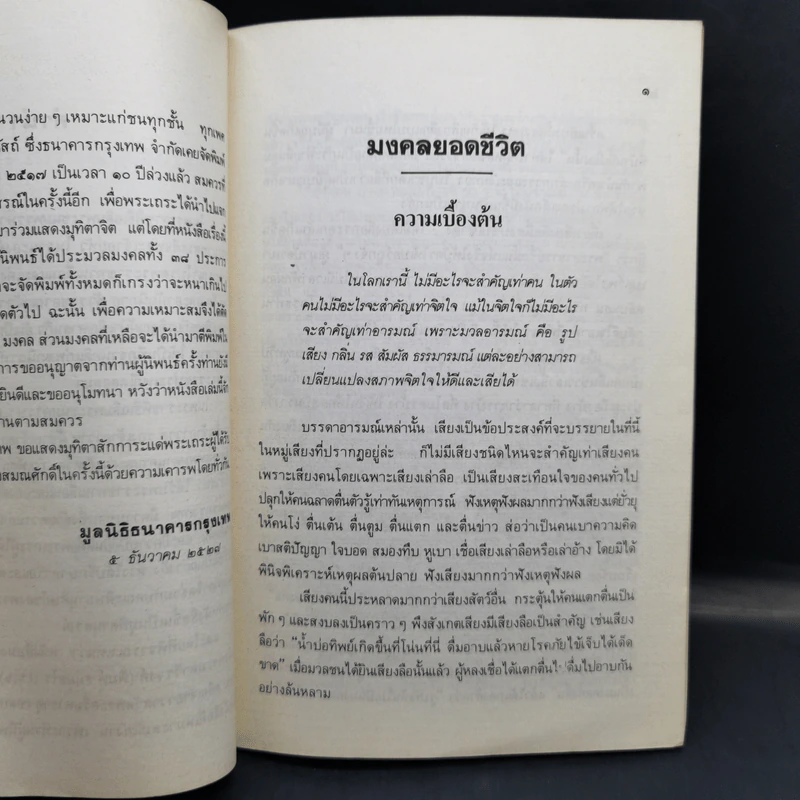 นวนง่าย ๆ เหมาะแก่ชนทุกชั้น ทุกเพศ
ซึ่งธนาคารกรุงเทพ จำกัดเคยจัดพิมพ์
๒๕๑๗ เป็นเวลา ๑๐ ปีล่วงแล้ว สมควรที่
ในครั้งนี้อีก เพื่อพระเถระได้นำไปแจก
ร่วมแสดงมุทิตาจิต แต่โดยที่หนังสือเรื่องนี้
นิพนธ์ได้ประมวลมงคลทั้ง ๓๘ ประการ
จะจัดพิมพ์ทั้งหมดก็เกรงว่าจะหนาเกินไป
ตัวไป ฉะนั้น เพื่อความเหมาะสมจึงได้ตัด
มงคล ส่วนมงคลที่เหลือจะได้นำมาตีพิมพ์ใน
การขออนุญาตจากท่านผู้นิพนธ์ครั้งท่านยังมี
ยินดีและขออนุโมทนา หวังว่าหนังสือเล่มนี้
านตามสมควร
พ ขอแสดงมุทิตาสักการะแด่พระเถระผู้ได้รับ
สมณศักดิ์ในครั้งนี้ด้วยความเคารพโดยทั่วกัน
มูลนิธิธนาคารกรุงเทพ
๕ ธันวาคม ๒๕๒๗
๑
มงคลยอดชีวิต
ความเบื้องต้น
ในโลกเรานี้ ไม่มีอะไรจะสำคัญเท่าคน ในตัว
คนไม่มีอะไรจะสำคัญเท่าจิตใจ แม้ในจิตใจก็ไม่มีอะไร
จะสำคัญเท่าอารมณ์ เพราะมวลอารมณ์ คือ รูป
เสียง กลิ่น รส สัมผัส ธรรมารมณ์ แต่ละอย่างสามารถ
เปลี่ยนแปลงสภาพจิตใจให้ดีและเสียได้
บรรดาอารมณ์เหล่านั้น เสียงเป็นข้อประสงค์ที่จะบรรยายในที่นี้
ในหมู่เสียงที่ปรากฏอยู่ล่ะ ก็ไม่มีเสียงชนิดไหนจะสำคัญเท่าเสียงคน
เพราะเสียงคนโดยเฉพาะเสียงเล่าลือ เป็นเสียงสะเทือนใจของคนทั่วไป
ปลุกให้คนฉลาดตื่นตัวรู้เท่าทันเหตุการณ์ ฟังเหตุฟังผลมากกว่าฟังเสียงแต่ยั่วยุ
ให้คนโง่ ตื่นเต้น ตื่นตูม ตื่นแตก และตื่นข่าว ส่อว่าเป็นคนเบาความคิด
เบาสติปัญญา ใจบอด สมองทึบ หูเบา เชื่อเสียงเล่าลือหรือเล่าอ้าง โดยมิได้
พินิจพิเคราะห์เหตุผลต้นปลาย ฟังเสียงมากกว่าฟังเหตุฟังผล
เสียงคนนี้ประหลาดมากกว่าเสียงสัตว์อื่น กระตุ้นให้คนแตกตื่นเป็น
พัก ๆ และสงบลงเป็นคราว ๆ พึงสังเกตเสียงมีเสียงลือเป็นสำคัญ เช่นเสียง
ลือว่า “น้ำบ่อทิพย์เกิดขึ้นที่โน่นที่นี่ ดื่มอาบแล้วหายโรคภัยไข้เจ็บได้เด็ด
ขาด” เมื่อมวลชนได้ยินเสียงลือนั้นแล้ว ผู้หลงเชื่อได้แตกตื่นไปดื่มไปอาบกัน
อย่างล้นหลาม